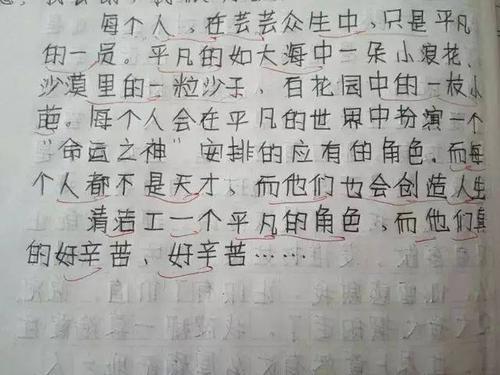 每个人，在芸芸众生中，只是平凡
的一员。平凡的如大海中一朵小浪花、
沙漠里的一粒沙子，百花园中的一枝小
葩。每个人会在平凡的世界中扮演一个
“命运之神”安排的应有的角色，而每
个人都不是天才，而他们也会创造人生
清洁工一个平凡的角色，而他们真
的好辛苦、好辛苦……